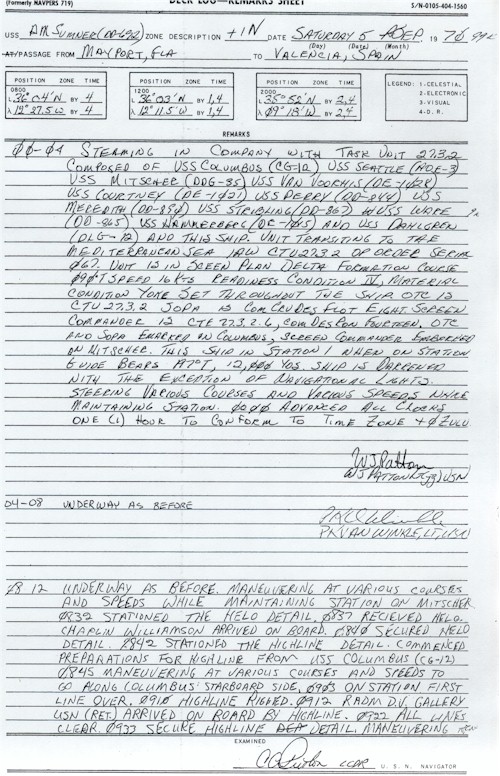 (Formerly NAVPERS 719)
DECK LOG—REMARKS SHEET
S/N-0105-404-1560
USS A.M. SUMNER (DD-692) ZONE DESCRIPTION +1N DATE SATURDAY 5 SEP 1970
(Day) (Date) (Month)
AT/PASSAGE FROM MAYPORT, FLA TO VALENCIA, SPAIN
POSITION ZONE TIME
0800
L 36° 04'N BY 4
λ 12° 37.5 W BY 4
POSITION ZONE TIME
1200
L 36° 03'N BY 1,4
λ 12° 11.5' W BY 1,4
POSITION ZONE TIME
2000
L 35° 52'N BY 2,4
λ 09° 18'W BY 2,4
LEGEND: 1-CELESTIAL
2-ELECTRONIC
3-VISUAL
4-D.R.
REMARKS
00-04 STEAMING IN COMPANY WITH TASK UNIT 27.3.2
COMPOSED OF USS COLUMBUS (CG-12) USS SEATTLE (AOE-3)
USS MITSCHER (DDG-35) USS VAN VOORHIS (DE-1028)
USS COURTNEY (DE-1021) USS PERRY (DD-844) USS
MEREDITH (DD-890) USS STRIBLING (DD-867) USS WARE
(DD-865) USS HAMMERBERG (DE-1015) AND USS DAHLGREN
(DLG-12) AND THIS SHIP. UNIT TRANSITING TO THE
MEDITERRANEAN SEA IAW CTU 27.3.2 OP ORDER SERIAL
067. UNIT IS IN SCREEN PLAN DELTA FORMATION COURSE
090T SPEED 16 KTS READINESS CONDITION IV, MATERIAL
CONDITION YOKE SET THROUGHOUT THE SHIP OTC IS
CTU 27.3.2 SOPA IS COMCRUDESFLOT EIGHT SCREEN
COMMANDER IS CTE 27.3.2.6, COMDESRON FOURTEEN, OTC
AND SOPA EMBARKED IN COLUMBUS, SCREEN COMMANDER EMBARKED
ON MITSCHER. THIS SHIP IN STATION 1 WHEN ON STATION
GUIDE BEARS 12,000 YDS. SHIP IS DARKENED
WITH THE EXCEPTION OF NAVIGATIONAL LIGHTS.
STEERING VARIOUS COURSES AND VARIOUS SPEEDS WHILE
MAINTAINING STATION. 0000 ADVANCED ALL CLOCKS
ONE (1) HOUR TO CONFORM TO TIME ZONE +0 ZULU
WJ Patton
WJ PATTON LT(JG) USN
04-08 UNDERWAY AS BEFORE
P.K. VAN WINKLE, LT, USN
08 12 UNDERWAY AS BEFORE. MANEUVERING AT VARIOUS COURSES
AND SPEEDS WHILE MAINTAINING STATION ON MITSCHER
0832 STATIONED THE HELO DETAIL. 0837 RECIEVED HELO.
CHAPLIN WILLIAMSON ARRIVED ON BOARD. 0840 SECURED HELO
DETAIL. 0842 STATIONED THE HIGHLINE DETAIL. COMMENCED
PREPARATIONS FOR HIGHLINE FROM USS COLUMBUS (CG-12)
0845 MANEUVERING AT VARIOUS COURSES AND SPEEDS TO
GO ALONG COLUMBUS' STARBOARD SIDE, 0905 ON STATION FIRST
LINE OVER. 0910 HIGHLINE RIGGED. 0912 RADM D.V. GALLERY
USN (RET.) ARRIVED ON BOARD BY HIGHLINE. 0922 ALL LINES
CLEAR. 0933 SECURE HIGHLINE DETAIL, MANEUVERING
EXAMINED
LCDR U. S. N. NAVIGATOR